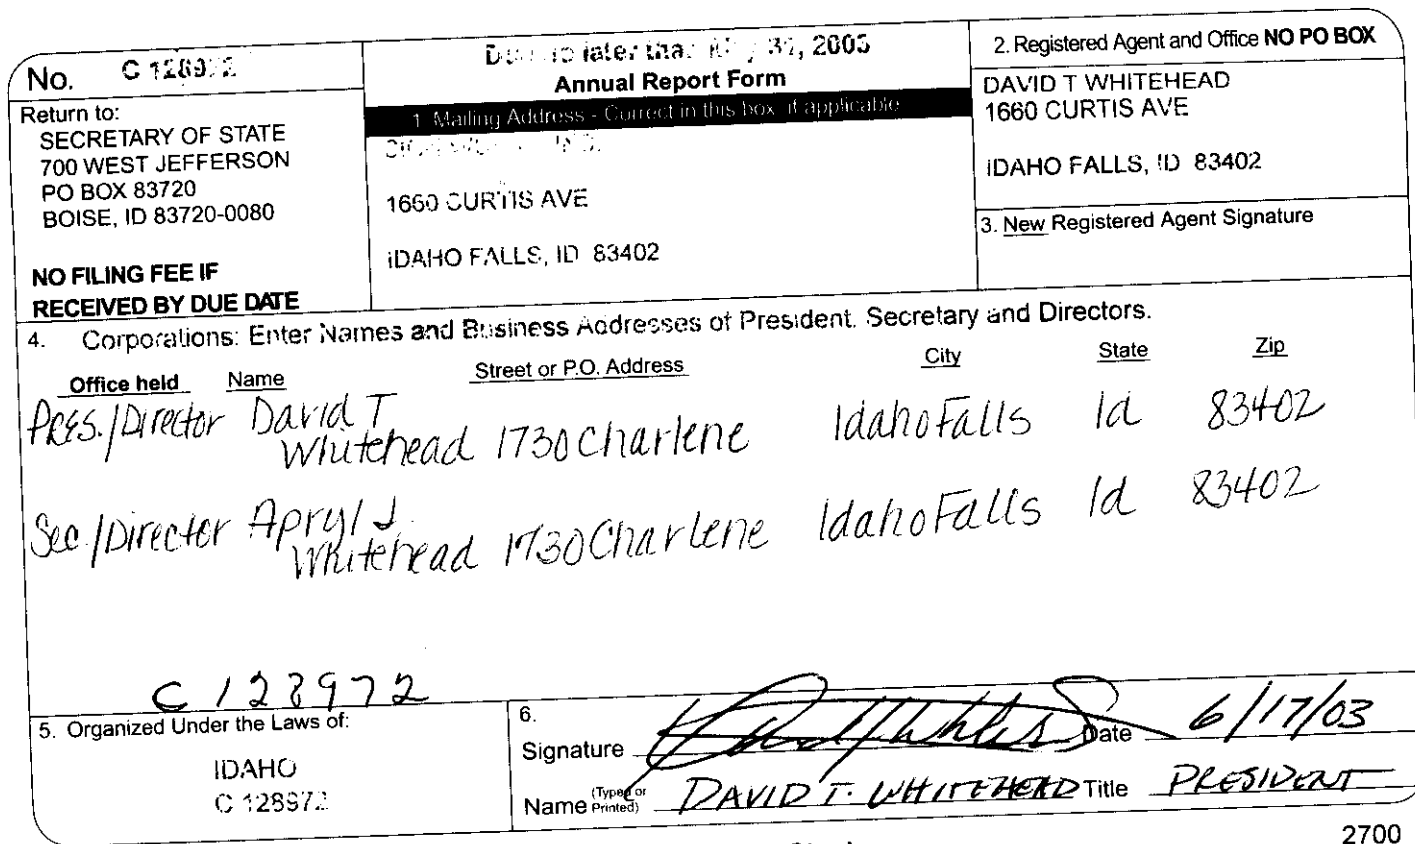 No. C 128972
Return to:
SECRETARY OF STATE
700 WEST JEFFERSON
PO BOX 83720
BOISE, ID 83720-0080
NO FILING FEE IF
RECEIVED BY DUE DATE
later 2003
Annual Report Form
1. Mailing Address - Correct in this box, if applicable
1660 CURTIS AVE
IDAHO FALLS, ID 83402
2. Registered Agent and Office NO PO BOX
DAVID T WHITEHEAD
1660 CURTIS AVE
IDAHO FALLS, ID 83402
3. New Registered Agent Signature
4. Corporations: Enter Names and Business Addresses of President, Secretary and Directors.
Office held Name Street or P.O. Address City State Zip
Pres./Director David T
Whitehead 1730 Charlene Idaho Falls Id 83402
Sec./Director Apryl J.
Whitehead 1730 Charlene Idaho Falls Id 83402
C 128972
5. Organized Under the Laws of:
IDAHO
C 128972
6.
Signature Date 6/17/03
Name (Typed or Printed) DAVID T. WHITEHEAD Title PRESIDENT
2700